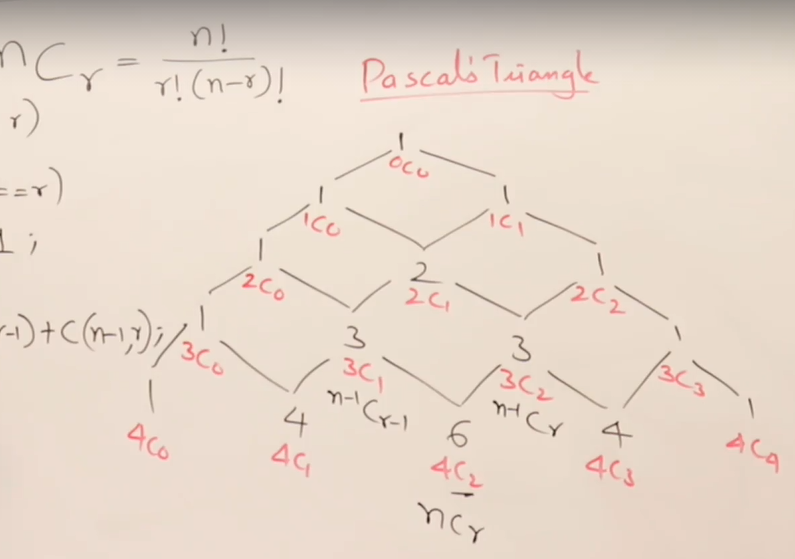 nCr = n! / r! (n-r)!
Pascal's Triangle
r)
==r)
1 ;
-1) + C(n-1,r);
1
0C0
1 1
1C0 1C1
1 2 1
2C0 2C1 2C2
1 3 3 1
3C0 3C1 3C2 3C3
n-1Cr-1 n-1Cr
1 4 6 4 1
4C0 4C1 4C2 4C3 4C4
nCr